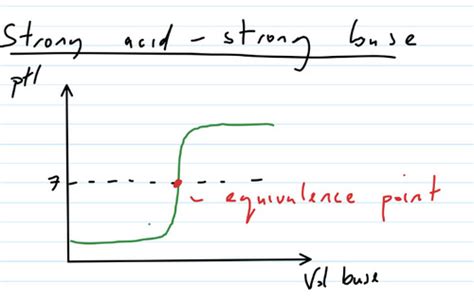 Strong acid - strong base
pH
7
equivalence point
Vol base